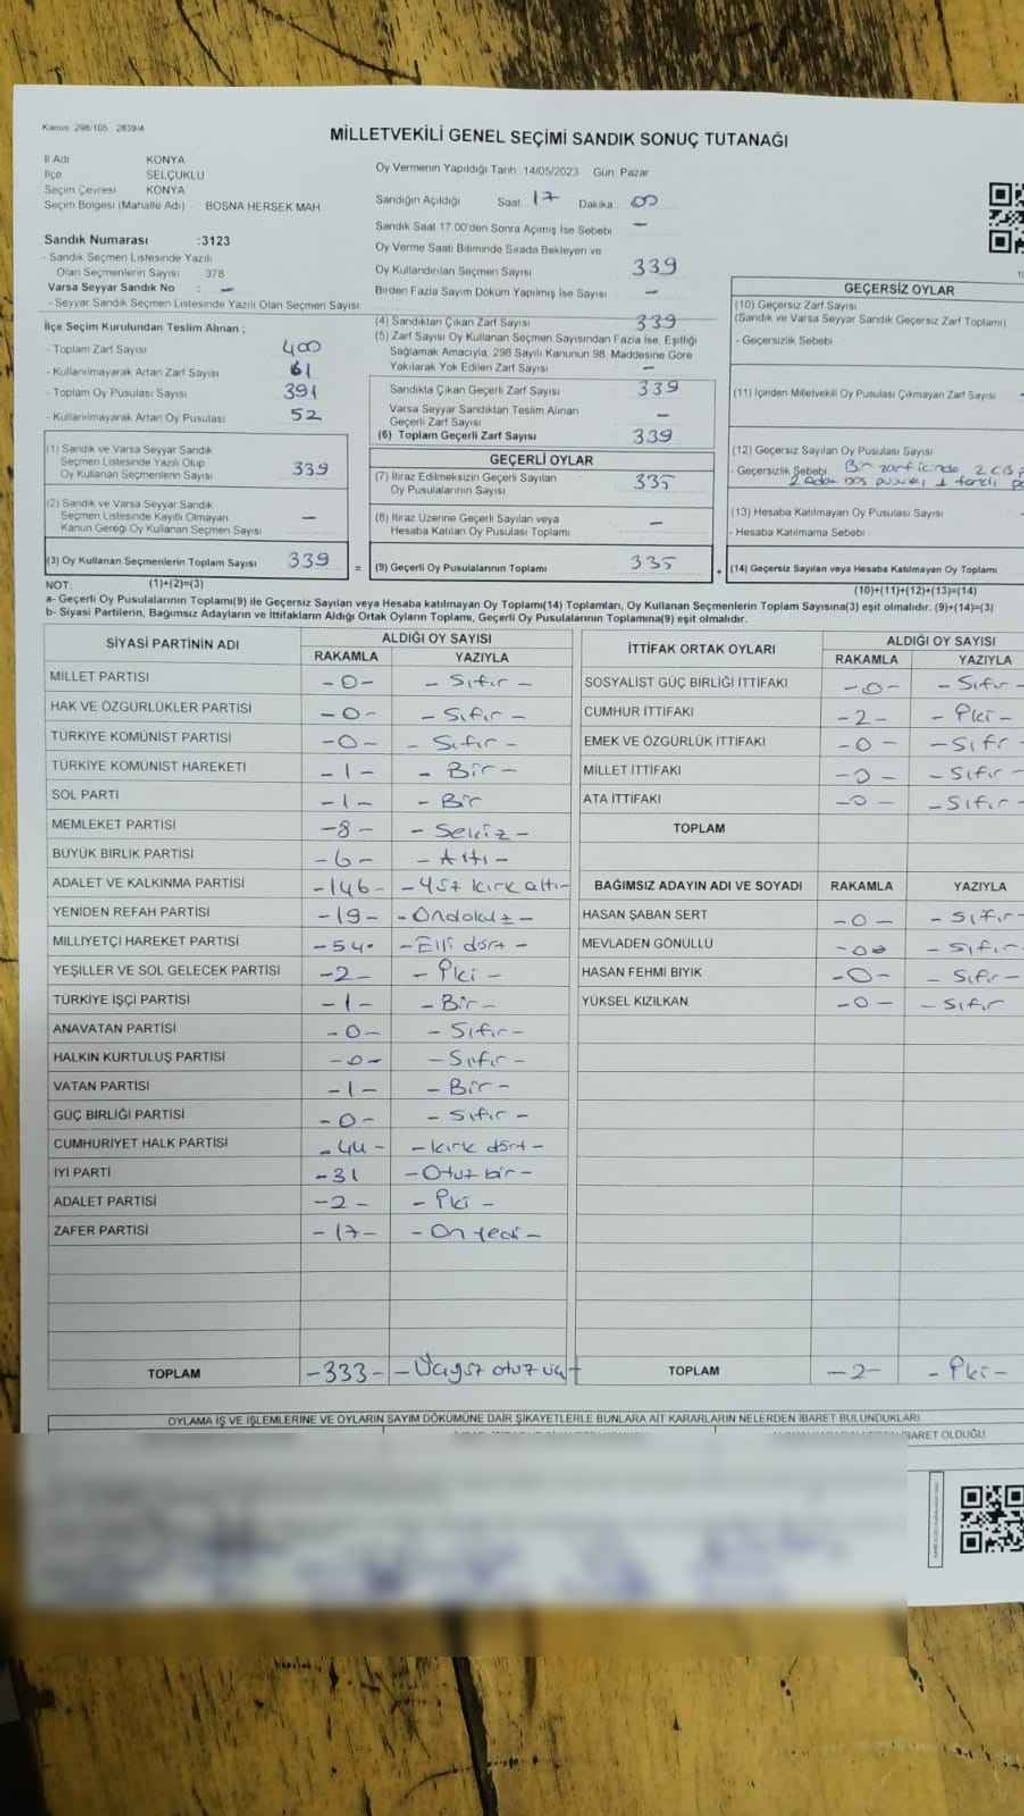 Kanun: 298/105 2839/4
MİLLETVEKİLİ GENEL SEÇİMİ SANDIK SONUÇ TUTANAĞI
İl Adı KONYA
İlçe SELÇUKLU
Seçim Çevresi KONYA
Seçim Bölgesi (Mahalle Adı) BOSNA HERSEK MAH.
Sandık Numarası :3123
- Sandık Seçmen Listesinde Yazılı
Olan Seçmenlerin Sayısı 378
Varsa Seyyar Sandık No : -
- Seyyar Sandık Seçmen Listesinde Yazılı Olan Seçmen Sayısı:
Oy Vermenin Yapıldığı Tarih: 14/05/2023 Gün: Pazar
Sandığın Açıldığı Saat: 17 Dakika: 00
Sandık Saat 17.00'den Sonra Açılmış İse Sebebi -
Oy Verme Saati Bitiminde Sırada Bekleyen ve
Oy Kullandırılan Seçmen Sayısı 339
Birden Fazla Sayım Döküm Yapılmış İse Sayısı -
İlçe Seçim Kurulundan Teslim Alınan ;
- Toplam Zarf Sayısı 400
- Kullanılmayarak Artan Zarf Sayısı 61
- Toplam Oy Pusulası Sayısı 391
- Kullanılmayarak Artan Oy Pusulası 52
(1) Sandık ve Varsa Seyyar Sandık
Seçmen Listesinde Yazılı Olup
Oy Kullanan Seçmenlerin Sayısı 339
(2) Sandık ve Varsa Seyyar Sandık
Seçmen Listesinde Kayıtlı Olmayan
Kanun Gereği Oy Kullanan Seçmen Sayısı -
(3) Oy Kullanan Seçmenlerin Toplam Sayısı 339 =
(1)+(2)=(3)
(4) Sandıktan Çıkan Zarf Sayısı 339
(5) Zarf Sayısı Oy Kullanan Seçmen Sayısından Fazla İse, Eşitliği
Sağlamak Amacıyla, 298 Sayılı Kanunun 98. Maddesine Göre
Yakılarak Yok Edilen Zarf Sayısı -
Sandıkta Çıkan Geçerli Zarf Sayısı 339
Varsa Seyyar Sandıktan Teslim Alınan
Geçerli Zarf Sayısı -
(6) Toplam Geçerli Zarf Sayısı 339
GEÇERLİ OYLAR
(7) İtiraz Edilmeksizin Geçerli Sayılan
Oy Pusulalarının Sayısı 335
(8) İtiraz Üzerine Geçerli Sayılan veya
Hesaba Katılan Oy Pusulası Toplamı -
(9) Geçerli Oy Pusulalarının Toplamı 335 +
GEÇERSİZ OYLAR
(10) Geçersiz Zarf Sayısı
(Sandık ve Varsa Seyyar Sandık Geçersiz Zarf Toplamı)
- Geçersizlik Sebebi:
(11) İçinden Milletvekili Oy Pusulası Çıkmayan Zarf Sayısı -
(12) Geçersiz Sayılan Oy Pusulası Sayısı
- Geçersizlik Sebebi: Bir zarf icinde 2 CB
2 Adet boş pusula, 1 farklı
(13) Hesaba Katılmayan Oy Pusulası Sayısı
- Hesaba Katılmama Sebebi:
(14) Geçersiz Sayılan veya Hesaba Katılmayan Oy Toplamı
(10)+(11)+(12)+(13)=(14)
NOT:
a- Geçerli Oy Pusulalarının Toplamı(9) ile Geçersiz Sayılan veya Hesaba katılmayan Oy Toplamı(14) Toplamları, Oy Kullanan Seçmenlerin Toplam Sayısına(3) eşit olmalıdır. (9)+(14)=(3)
b- Siyasi Partilerin, Bağımsız Adayların ve İttifakların Aldığı Ortak Oyların Toplamı, Geçerli Oy Pusulalarının Toplamına(9) eşit olmalıdır.
SİYASİ PARTİNİN ADI ALDIĞI OY SAYISI
RAKAMLA YAZIYLA
MİLLET PARTİSİ -0- - Sıfır -
HAK VE ÖZGÜRLÜKLER PARTİSİ -0- - Sıfır -
TÜRKİYE KOMÜNİST PARTİSİ -0- - Sıfır -
TÜRKİYE KOMÜNİST HAREKETİ -1- - Bir -
SOL PARTİ -1- - Bir
MEMLEKET PARTİSİ -8- - Sekiz -
BÜYÜK BİRLİK PARTİSİ -6- - Altı -
ADALET VE KALKINMA PARTİSİ -146- - Yüz kırk altı -
YENİDEN REFAH PARTİSİ -19- - Ondokuz -
MİLLİYETÇİ HAREKET PARTİSİ -54- - Elli dört -
YEŞİLLER VE SOL GELECEK PARTİSİ -2- - İki -
TÜRKİYE İŞÇİ PARTİSİ -1- - Bir -
ANAVATAN PARTİSİ -0- - Sıfır -
HALKIN KURTULUŞ PARTİSİ -0- - Sıfır -
VATAN PARTİSİ -1- - Bir -
GÜÇ BİRLİĞİ PARTİSİ -0- - Sıfır -
CUMHURİYET HALK PARTİSİ -44- - kırk dört -
İYİ PARTİ -31 - Otuz bir -
ADALET PARTİSİ -2- - İki -
ZAFER PARTİSİ -17- - On yedi -
TOPLAM -333- - Üçyüz otuz üç +
İTTİFAK ORTAK OYLARI ALDIĞI OY SAYISI
RAKAMLA YAZIYLA
SOSYALİST GÜÇ BİRLİĞİ İTTİFAKI -0- - Sıfır -
CUMHUR İTTİFAKI -2- - İki -
EMEK VE ÖZGÜRLÜK İTTİFAKI -0- - Sıfr
MİLLET İTTİFAKI -0- - Sıfır -
ATA İTTİFAKI -0- - Sıfır -
TOPLAM
BAĞIMSIZ ADAYIN ADI VE SOYADI RAKAMLA YAZIYLA
HASAN ŞABAN SERT -0- - Sıfır -
MEVLADEN GÖNÜLLÜ -0- - Sıfır -
HASAN FEHMİ BIYIK -0- - Sıfır -
YÜKSEL KIZILKAN -0- - Sıfır
TOPLAM -2- - İki -
OYLAMA İŞ VE İŞLEMLERİNE VE OYLARIN SAYIM DÖKÜMÜNE DAİR ŞİKAYETLERLE BUNLARA AİT KARARLARIN NELERDEN İBARET BULUNDUKLARI
İBARET OLDUĞU